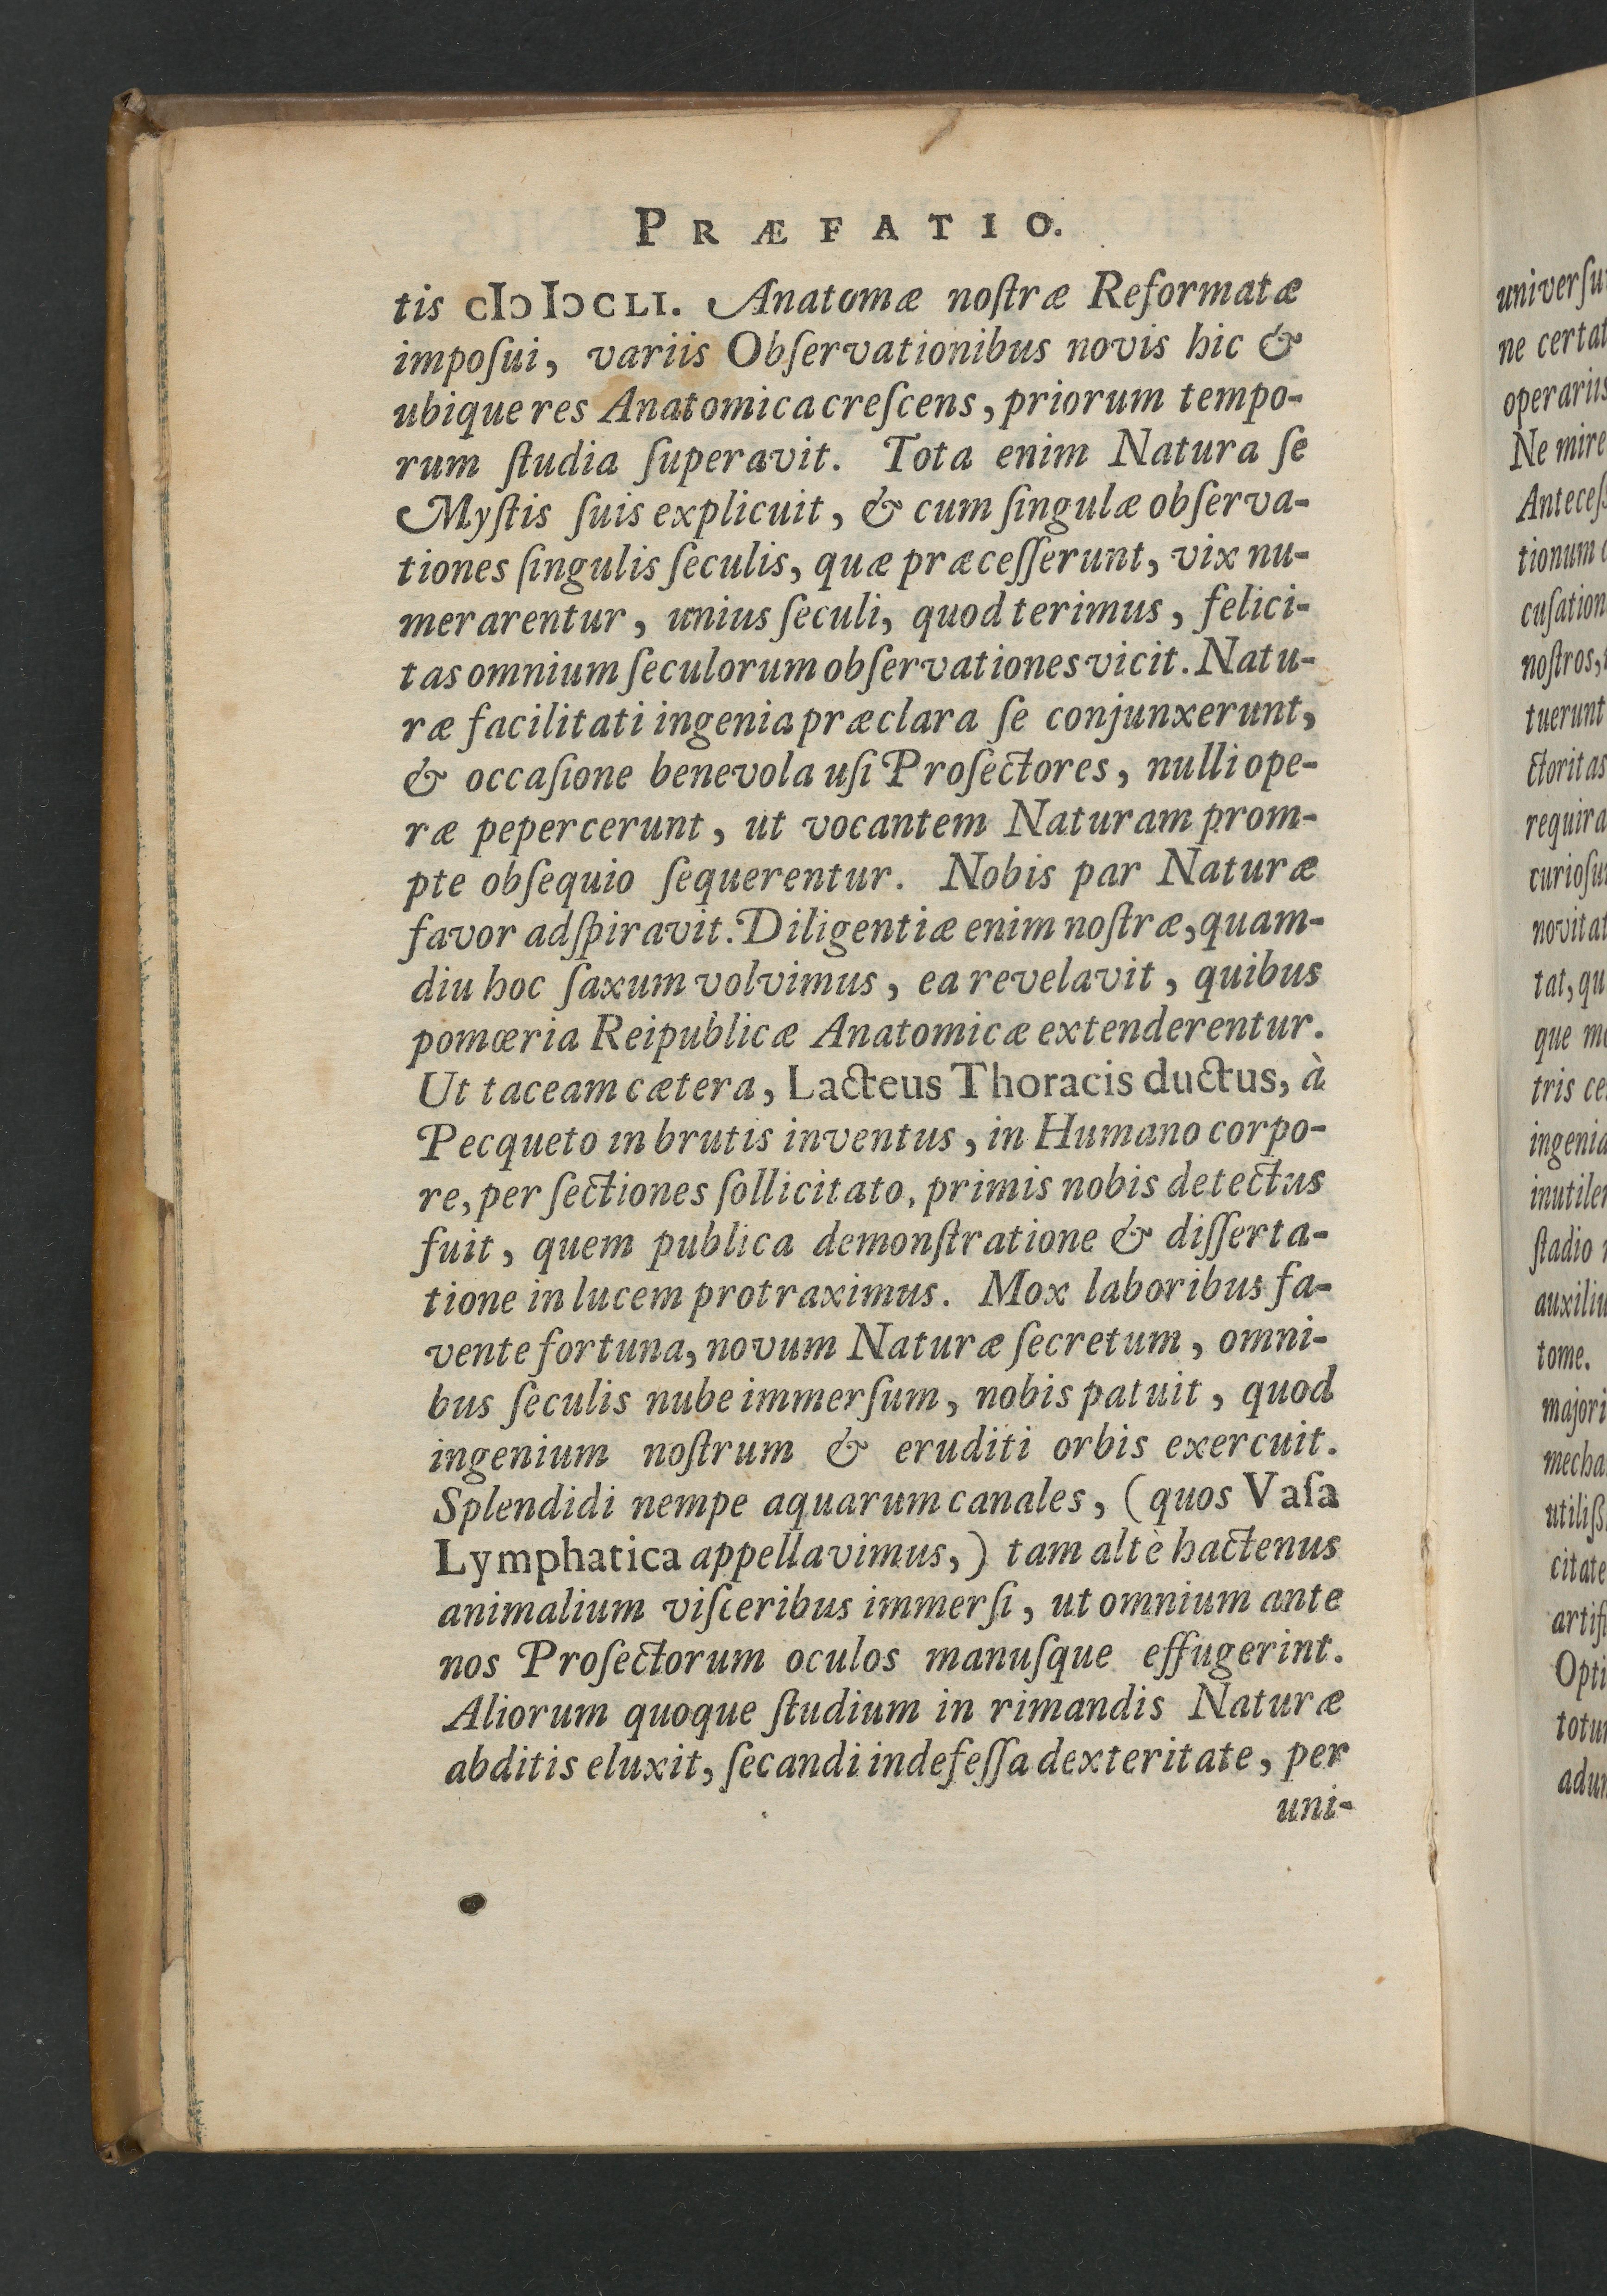 PRÆFATIO.
tis cIɔ Iɔ CLI. Anatomæ noſtræ Reformatæ
impoſui, variis Obſervationibus novis hic &
ubique res Anatomica creſcens, priorum tempo-
rum ſtudia ſuperavit. Tota enim Natura ſe
Myſtis ſuis explicuit, & cum ſingulæ obſerva-
tiones ſingulis ſeculis, quæ præceſſerunt, vix nu-
merarentur, unius ſeculi, quod terimus, felici-
tas omnium ſeculorum obſervationes vicit. Natu-
ræ facilitati ingenia præclara ſe conjunxerunt,
& occaſione benevola uſi Proſectores, nulli ope-
ræ pepercerunt, ut vocantem Naturam prom-
pte obſequio ſequerentur. Nobis par Naturæ
favor adſpiravit. Diligentiæ enim noſtræ, quam-
diu hoc ſaxum volvimus, ea revelavit, quibus
pomœria Reipublicæ Anatomicæ extenderentur.
Ut taceam cætera, Lacteus Thoracis ductus, à
Pecqueto in brutis inventus, in Humano corpo-
re, per ſectiones ſollicitato, primis nobis detectus
fuit, quem publica demonſtratione & diſſerta-
tione in lucem protraximus. Mox laboribus fa-
vente fortuna, novum Naturæ ſecretum, omni-
bus ſeculis nube immerſum, nobis patuit, quod
ingenium noſtrum & eruditi orbis exercuit.
Splendidi nempe aquarum canales, (quos Vaſa
Lymphatica appellavimus,) tam altè hactenus
animalium viſceribus immerſi, ut omnium ante
nos Proſectorum oculos manuſque effugerint.
Aliorum quoque ſtudium in rimandis Naturæ
abditis eluxit, ſecandi indefeſſa dexteritate, per
uni-
ne certat
operariis
Ne mire
tionum
nostros,
tuerunt
ctoritas
requira
novitat
tat, qu
que
tris ce
ingenia
ſtadio
tome.
majori
mecha
citate
Opti